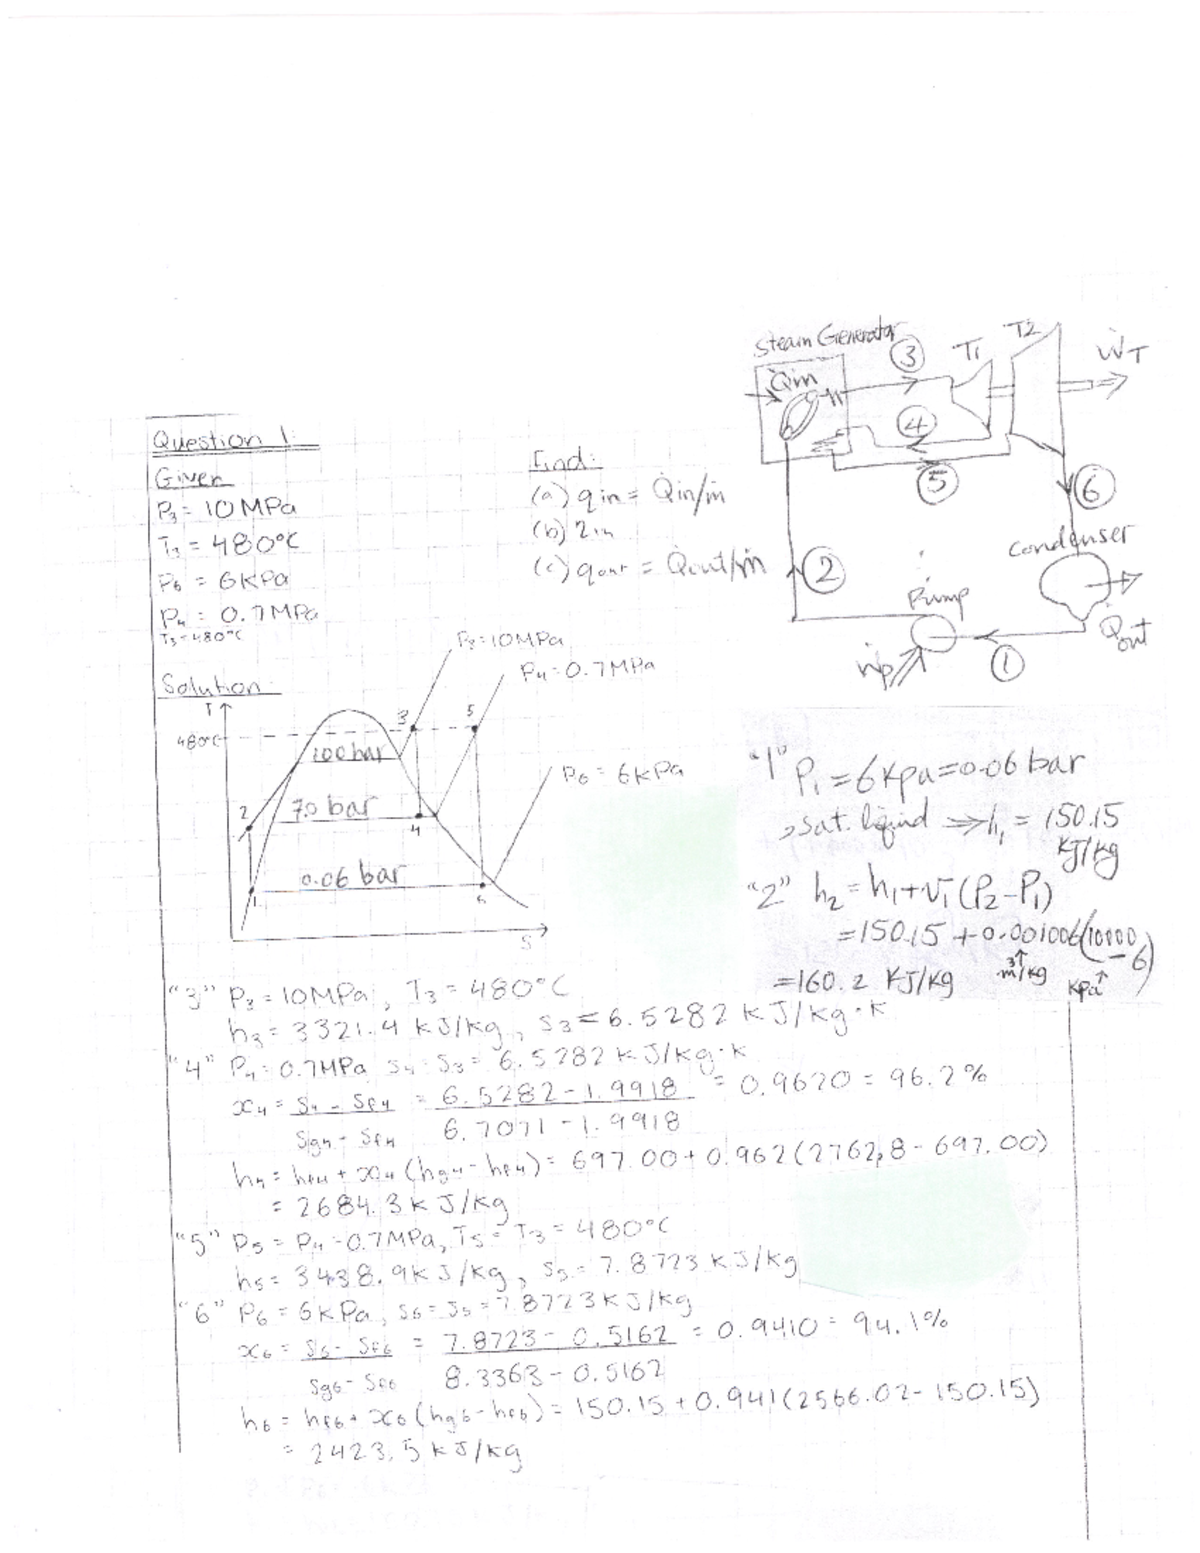 Question 1:
Given
P3 = 10MPa
T3 = 480°C
P6 = 6KPa
P4 = 0.7MPa
T5 = 480°C
Find:
(a) qin = Q̇in/ṁ
(b) ηin
(c) qout = Q̇out/ṁ
Steam Generator
Q̇in
3
T1
T2
ẆT
4
5
6
Condenser
2
Pump
Q̇out
Ẇp
1
Solution:
T
480°C
P3 = 10MPa
P4 = 0.7MPa
P6 = 6KPa
3
5
100 bar
2
7.0 bar
4
0.06 bar
1
6
S
"1" P1 = 6kpa = 0.06 bar
, sat. liquid ⇒ h1 = 150.15
KJ/kg
"2" h2 = h1 + v1 (P2 - P1)
= 150.15 + 0.001006(10000 - 6)
= 160.2 KJ/kg
m3/kg
kpa
"3" P3 = 10MPa, T3 = 480°C
h3 = 3321.4 kJ/kg, S3 = 6.5282 kJ/kg·K
"4" P4 = 0.7MPa S4 = S3 = 6.5282 kJ/kg·K
x4 = S4 - Sf4 / Sg4 - Sf4 = 6.5282 - 1.9918 / 6.7071 - 1.9918 = 0.9620 = 96.2%
h4 = hf4 + x4 (hg4 - hf4) = 697.00 + 0.962 (2762,8 - 697.00)
= 2684.3 kJ/kg
"5" P5 = P4 = 0.7MPa, T5 = T3 = 480°C
h5 = 3438.9 kJ/kg, S5 = 7.8723 kJ/kg
"6" P6 = 6kPa, S6 = S5 = 7.8723 kJ/kg
x6 = S5 - Sf6 / Sg6 - Sf6 = 7.8723 - 0.5162 / 8.3363 - 0.5162 = 0.9410 = 94.1%
h6 = hf6 + x6 (hg6 - hf6) = 150.15 + 0.941 (2566.02 - 150.15)
= 2423.5 kJ/kg